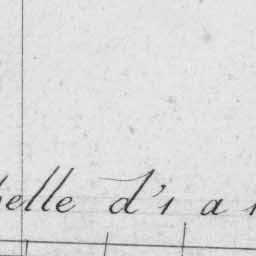 elle d'1 a